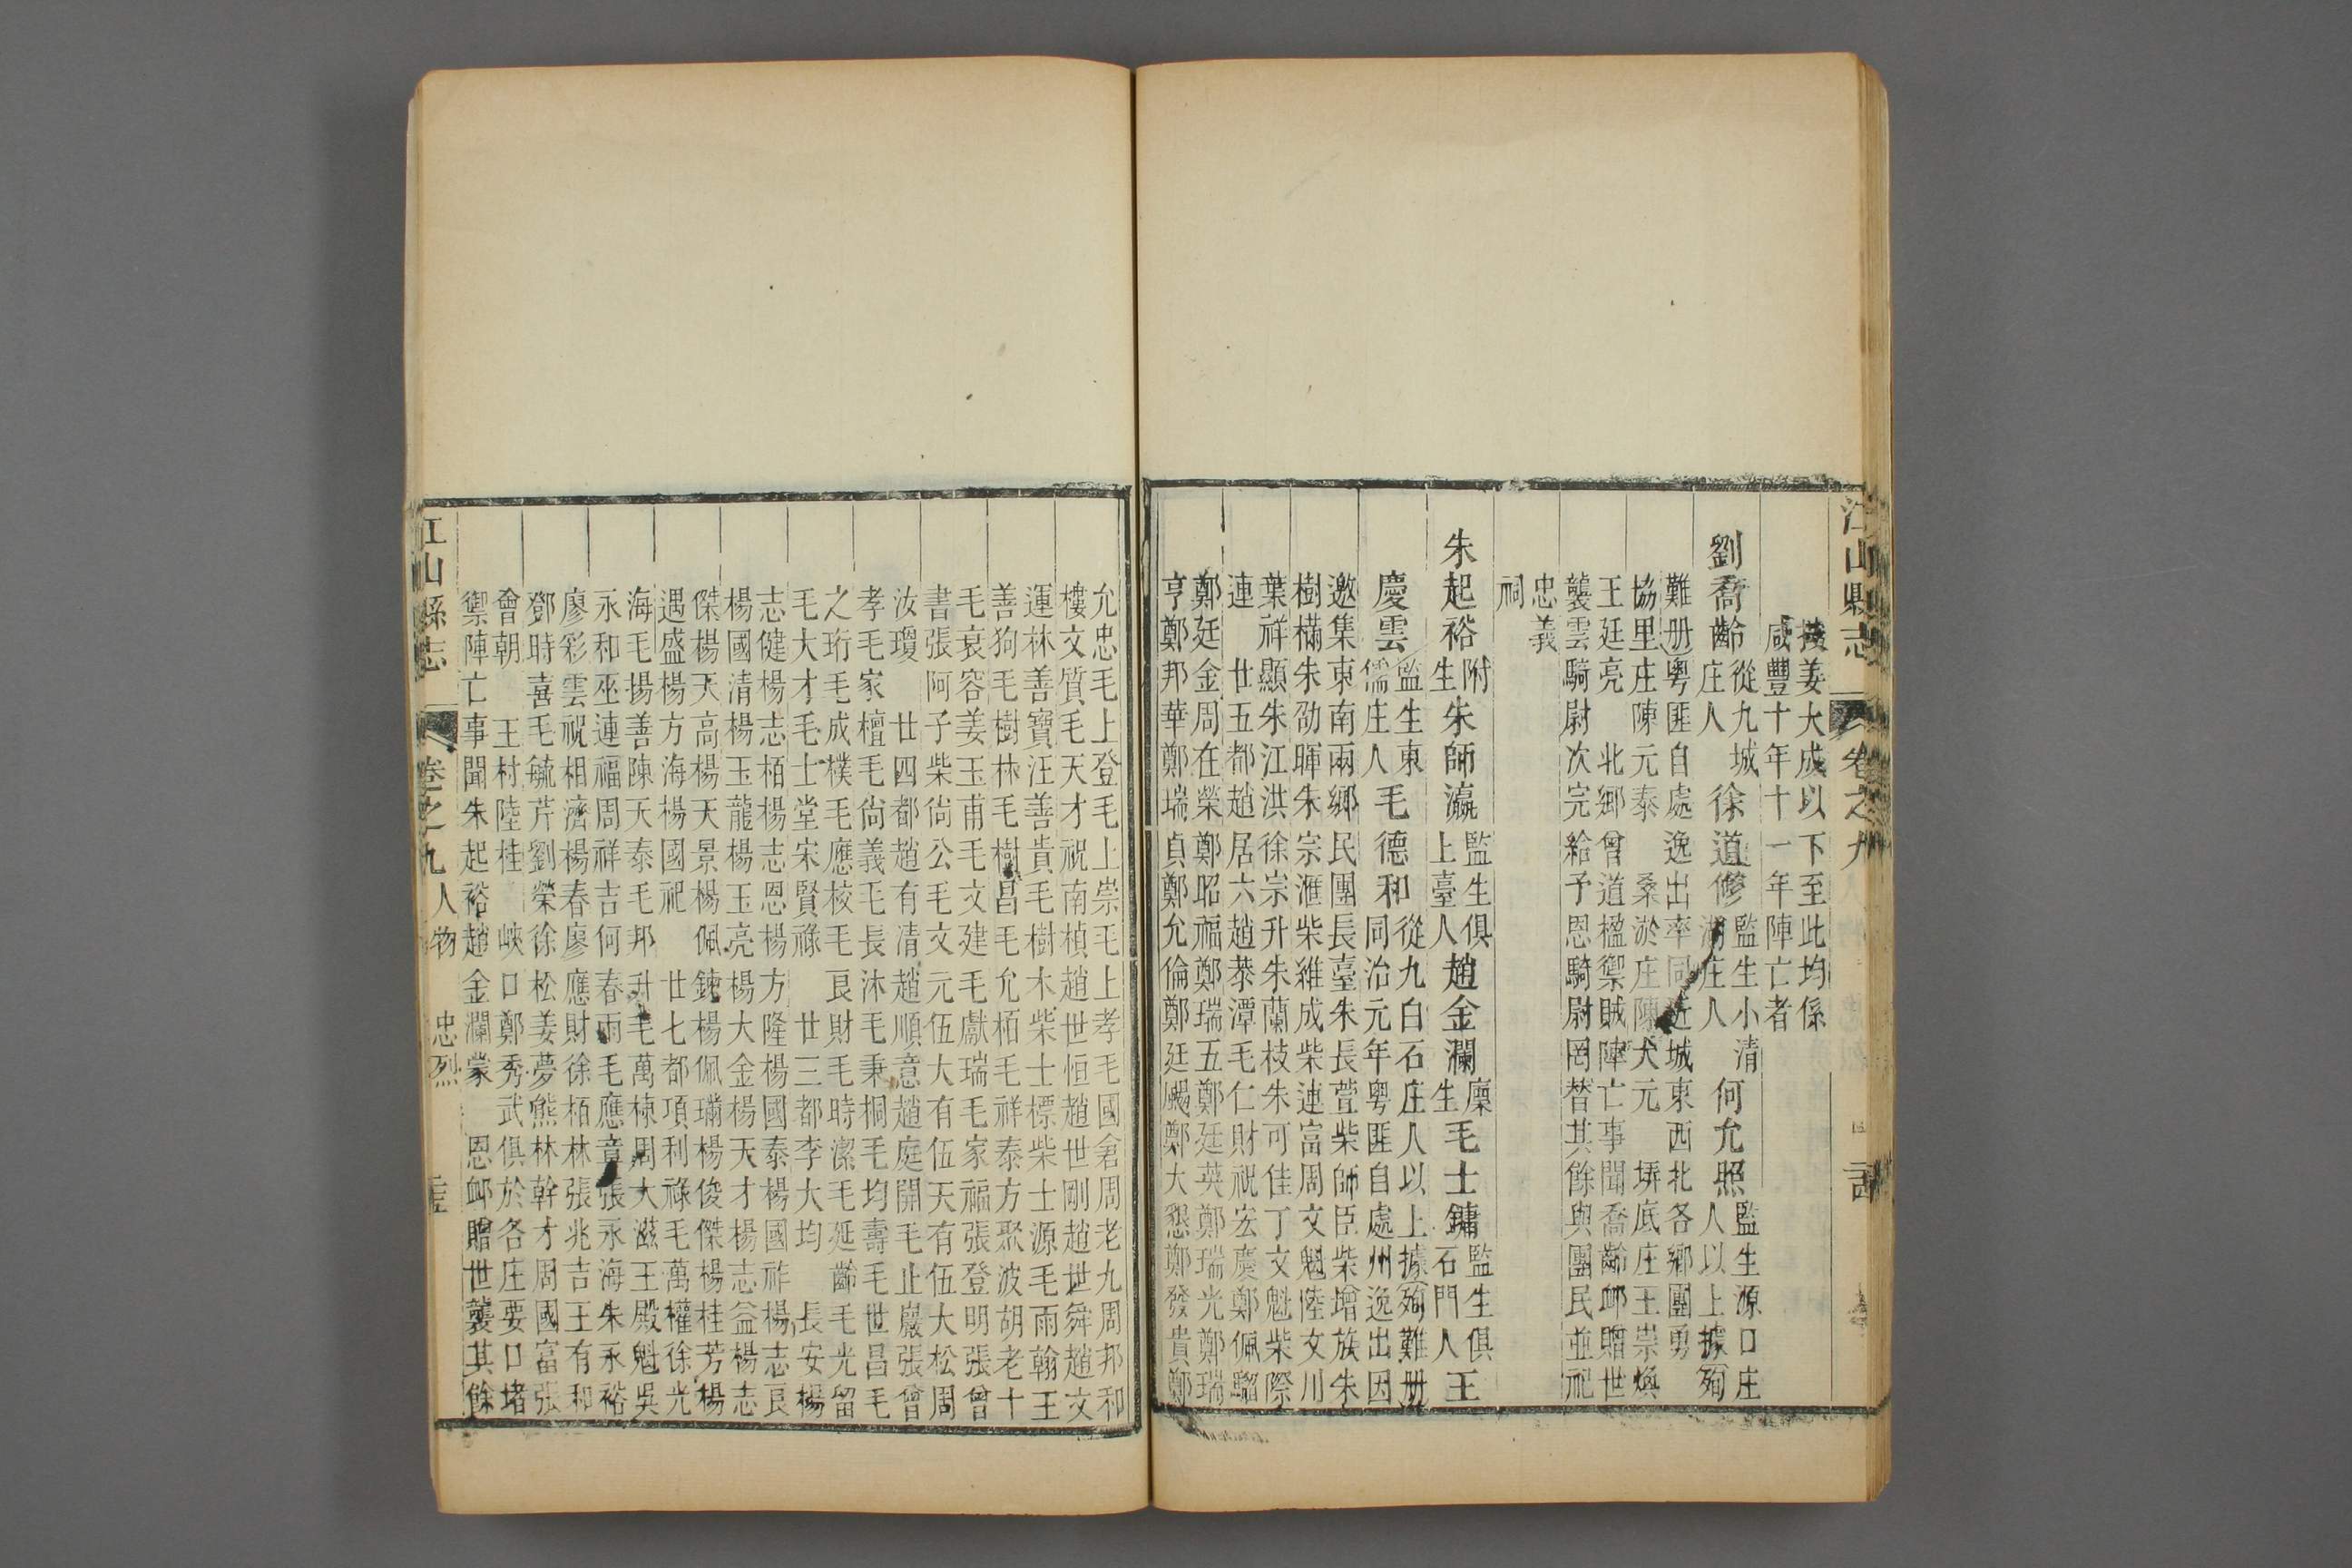 江山縣志 卷之九
按姜大成以下至此均係
咸豐十年十一年陣亡者
劉喬齡 從九城庄人 徐道修 監生小清湖庄人 何允照 監生源口庄人以上據殉
難册粵匪自處逸出率同近城東西北各鄉團勇
協里庄陳元泰 桑淤庄陳大元 塀底庄王崇煥
王廷亮 北鄉曾道楹禦賊陣亡事聞喬齡卹贈世
襲雲騎尉次完給予恩騎尉罔替其餘與團民並祀
忠義
祠
朱起裕 附生 朱師瀛 監生俱上臺人 趙金瀾 廩生 毛士鏞 監生俱石門人 王
慶雲 監生東儒庄人 毛德和 從九白石庄人以上據殉難册同治元年粵匪自處州逸出因
邀集東南兩鄉民團長臺朱長萱柴師臣柴增族朱
樹楠朱劭暉朱宗滙柴維成柴連富周文魁陸文川
葉祥顯朱江洪徐崇升朱蘭枝朱可佳丁文魁柴際
連 廿五都趙居六趙蓁潭毛仁財祝宏慶鄭佩騮
鄭廷金周在榮鄭昭福鄭瑞五鄭廷英鄭瑞光鄭瑞
亨鄭邦華鄭瑞貞鄭允倫鄭廷颺鄭大懇鄭發貴鄭
允忠毛上登毛上崇毛上孝毛國倉周老九周邦和
樓文質毛天才祝南楨趙世恒趙世剛趙世舜趙文
運林善寶汪善貴毛樹木柴士標柴士源毛雨翰王
善狗毛樹林毛樹昌毛允栢毛祥泰方聚波胡老十
毛衰容姜玉甫毛文建毛獻瑞毛家福張登明張曾
書張阿子柴尙公毛文元伍大有伍天有伍大松周
汝瓊 廿四都趙有清趙順意趙庭開毛止嚴張曾
孝毛家檀毛尙義毛長沐毛秉桐毛均壽毛世昌毛
之珩毛成樸毛應校毛良財毛時潔毛延齡毛光留
毛大才毛士堂宋賢祿 廿三都李大均 長安楊
志健楊志栢楊志恩楊方隆楊國泰楊國祚楊志良
楊國清楊玉龍楊玉亮楊大金楊天才楊志益楊志
傑楊天高楊天景楊佩鍊楊佩璊楊俊傑楊桂芳楊
遇盛楊方海楊國祀 廿七都項利祿毛萬權徐光
海毛揚善陳天泰毛邦升毛萬棟周大滋王殿魁吳
永和巫連福周祥吉何春雨毛應章張永海朱永裕
廖彩雲祝相濟楊春廖應財徐栢林張兆吉王有和
鄧時喜毛毓芹劉榮徐松姜夢熊林幹才周國富張
會朝 王村陸桂 峽口鄭秀武俱於各庄要口堵
禦陣亡事聞朱起裕趙金瀾蒙 恩卹贈世襲其餘
江山縣志 卷之九 人物 忠烈